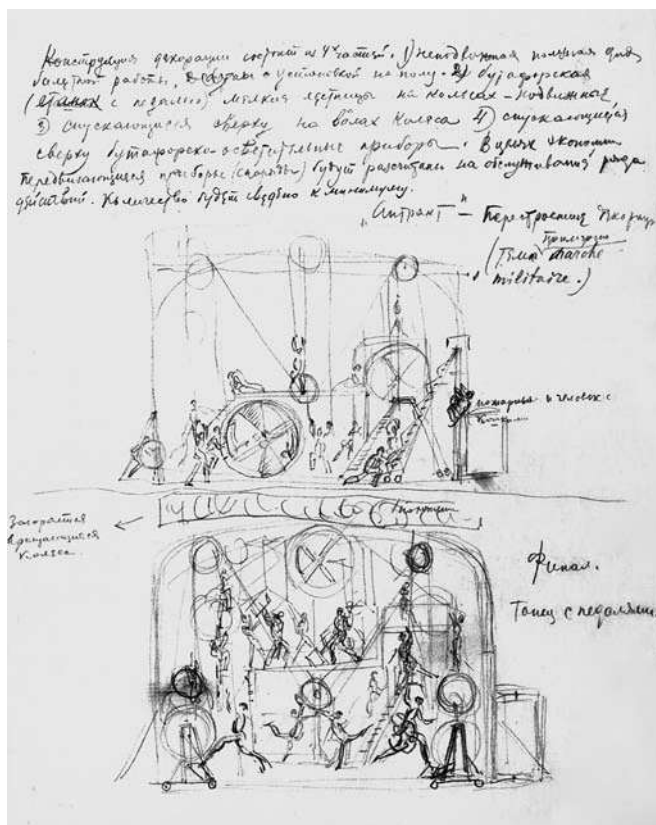 Конструкция декорации состоит из 4х частей. 1) неподвижная польная для
балетной работы, с установкой на полу. 2) бутафорская
(станки с педалью) мелкие лестницы на колесах - подвижные
3) спускающиеся сверху на колеса 4) спускающиеся
сверху бутафорско-осветительные приборы. В целях экономии
передвигающиеся приборы (снаряды) будут рассчитаны на обслуживания ряда
действий. Количество будет сведено к минимуму.
„Антракт“ – Перестроения декорации
(Темп примерно marche
militaire.)
пожарный и человек с
Загораются
вращающиеся
колеса.
Финал.
Танец с педалями